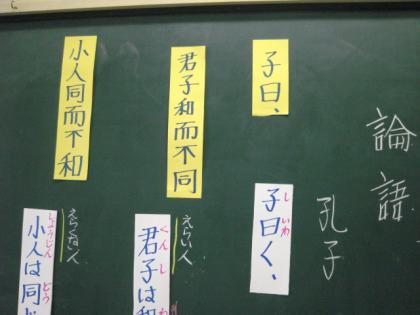 論語
孔子
子曰、
君子和而不同
小人同而不和
し いわ
子曰く、
えらい人
くん し わ
君子は和
えらくない人
しょうじん どう
小人は同じ